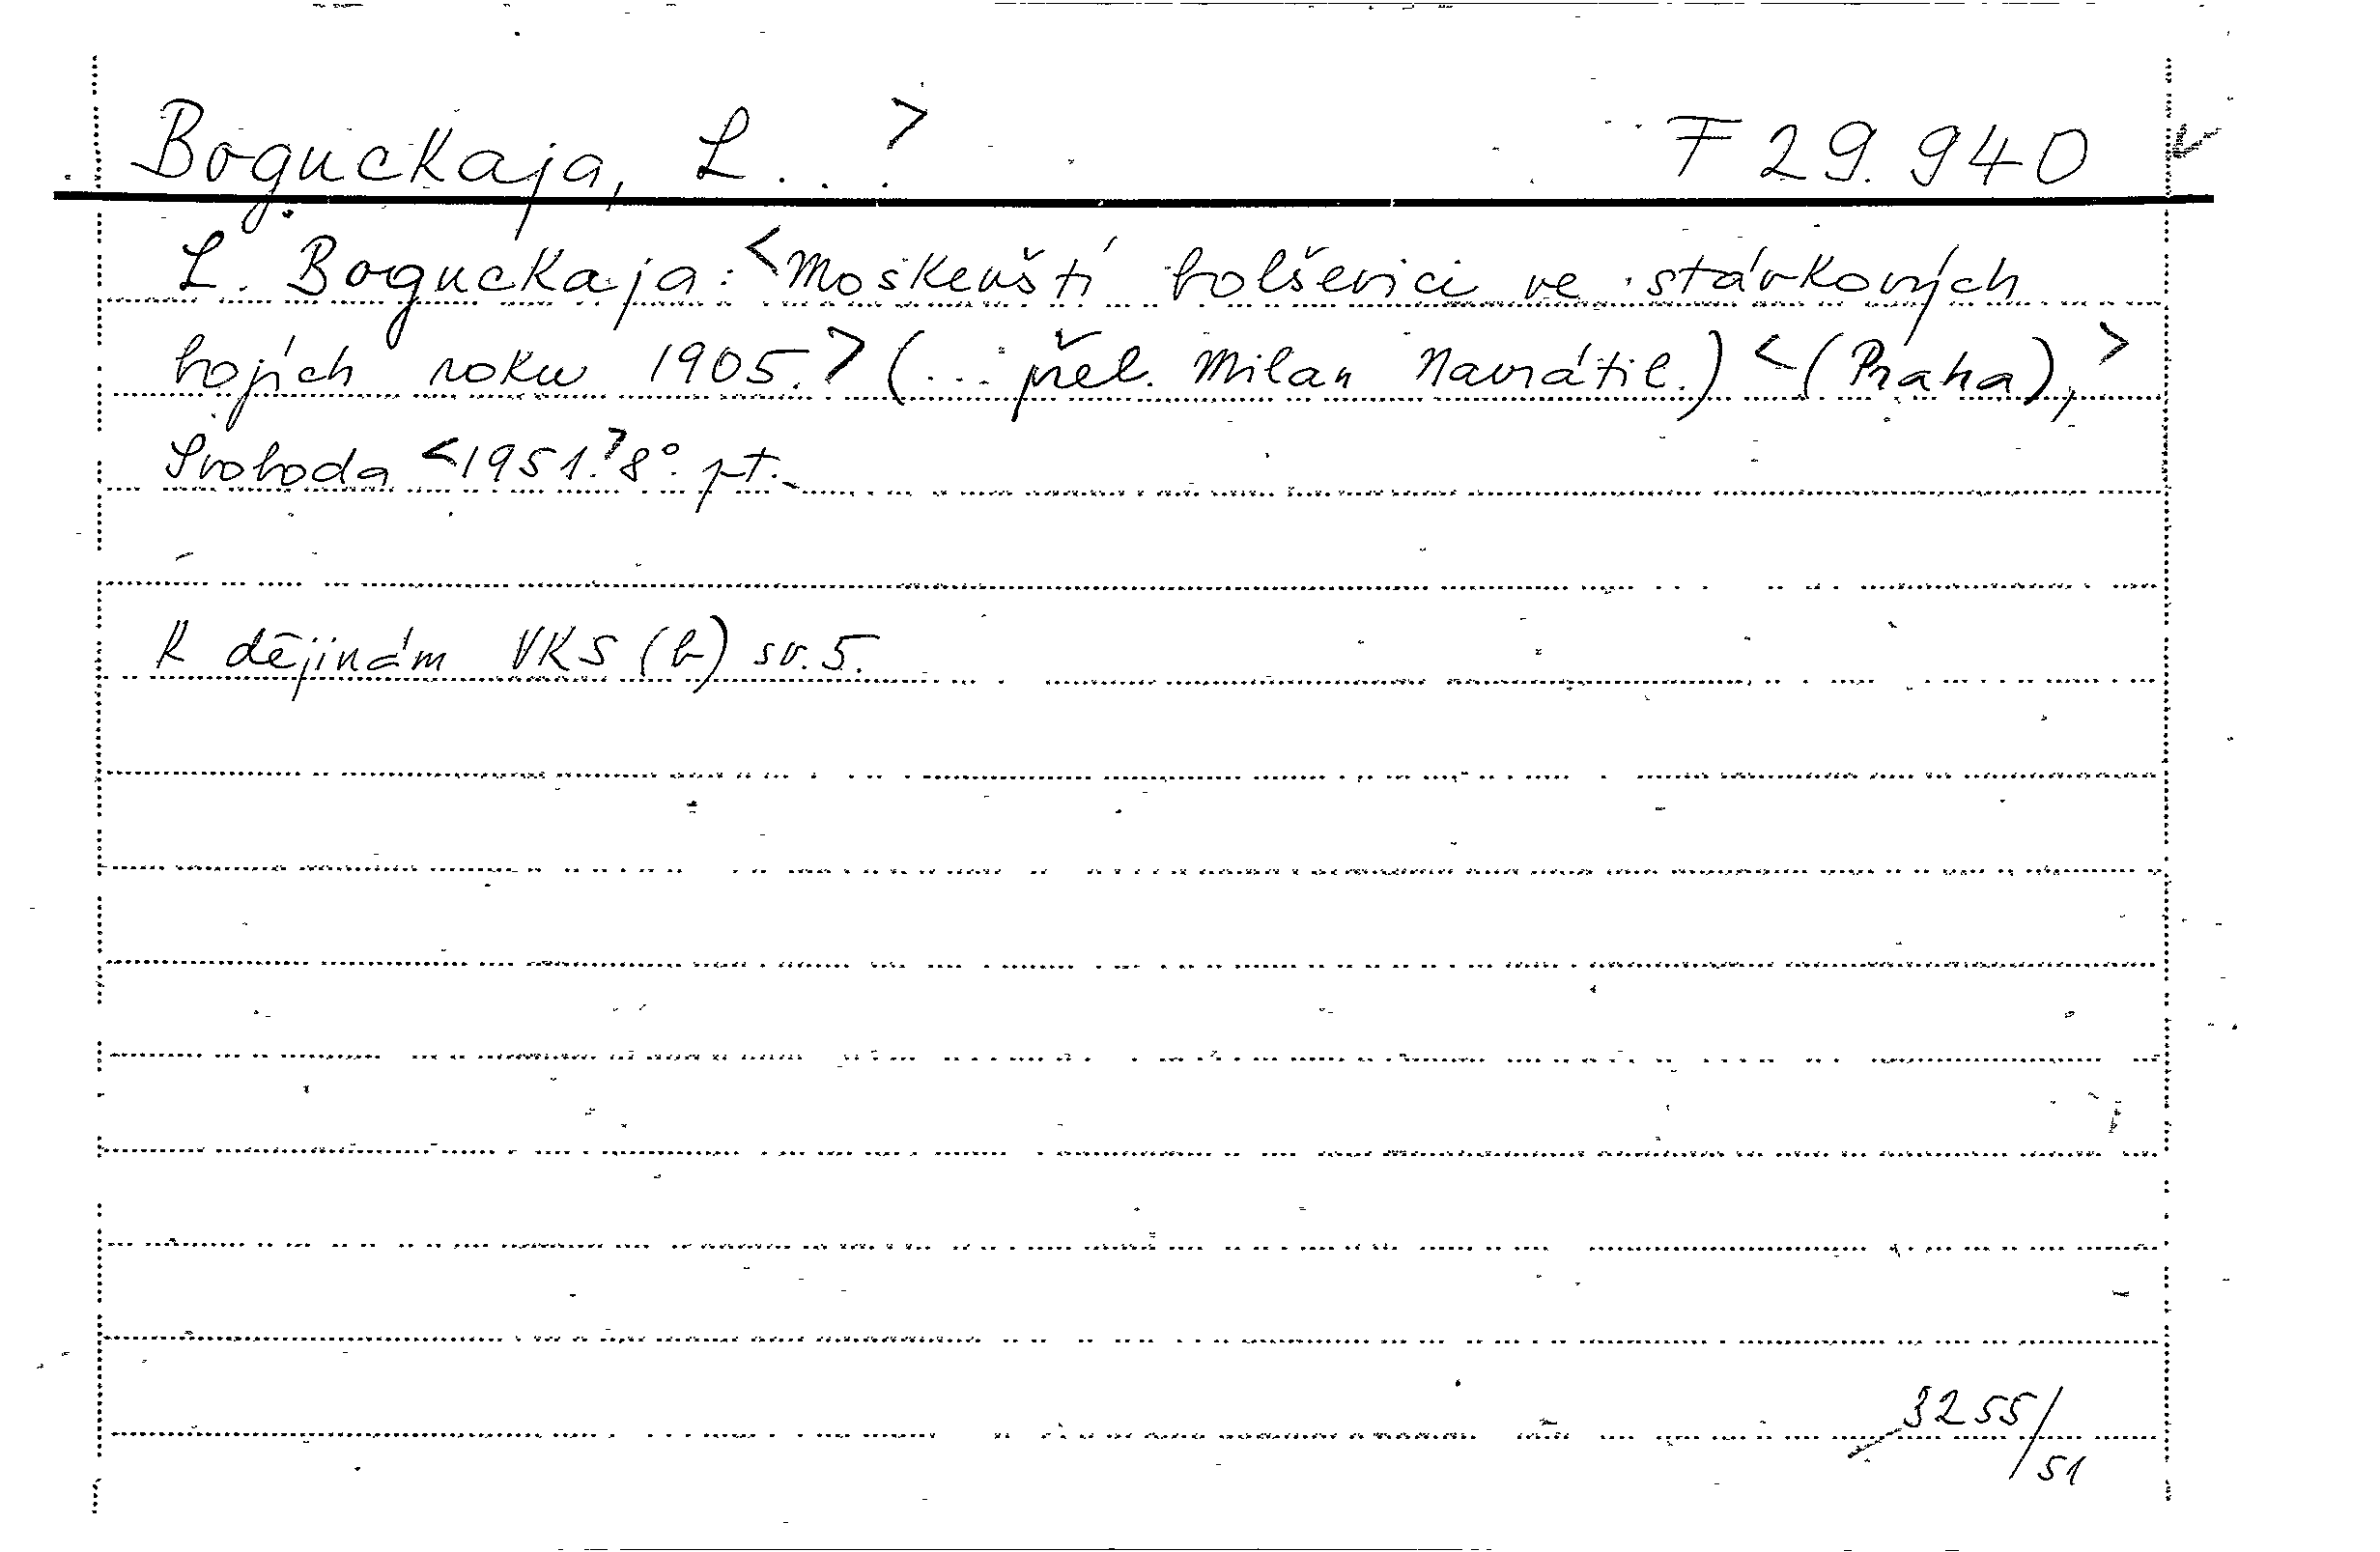 Boguckaja, L. . . > F 29.940
L. Boguckaja: <Moskevští bolševici ve stávkových
bojích roku 1905.> (... přel. Milan Navrátil.) <(Praha),>
Svoboda <1951.> 8°. pt.-
K dějinám VKS (b) sv. 5.
3255/51